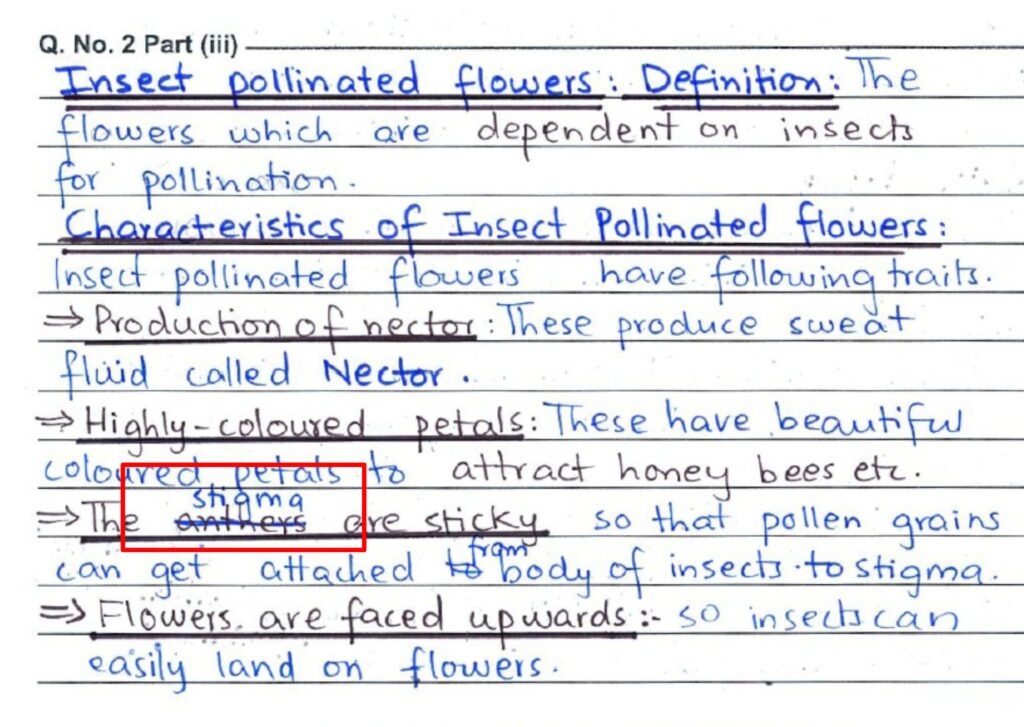 Q. No. 2 Part (iii)
Insect pollinated flowers: Definition: The
flowers which are dependent on insects
for pollination.
Characteristics of Insect Pollinated flowers:
Insect pollinated flowers have following traits.
⇒ Production of nector: These produce sweat
fluid called Nector.
⇒ Highly-coloured petals: These have beautiful
coloured petals to attract honey bees etc.
stigma
⇒ The anthers are sticky so that pollen grains
from
can get attached to body of insects to stigma.
⇒ Flowers are faced upwards:- so insects can
easily land on flowers.